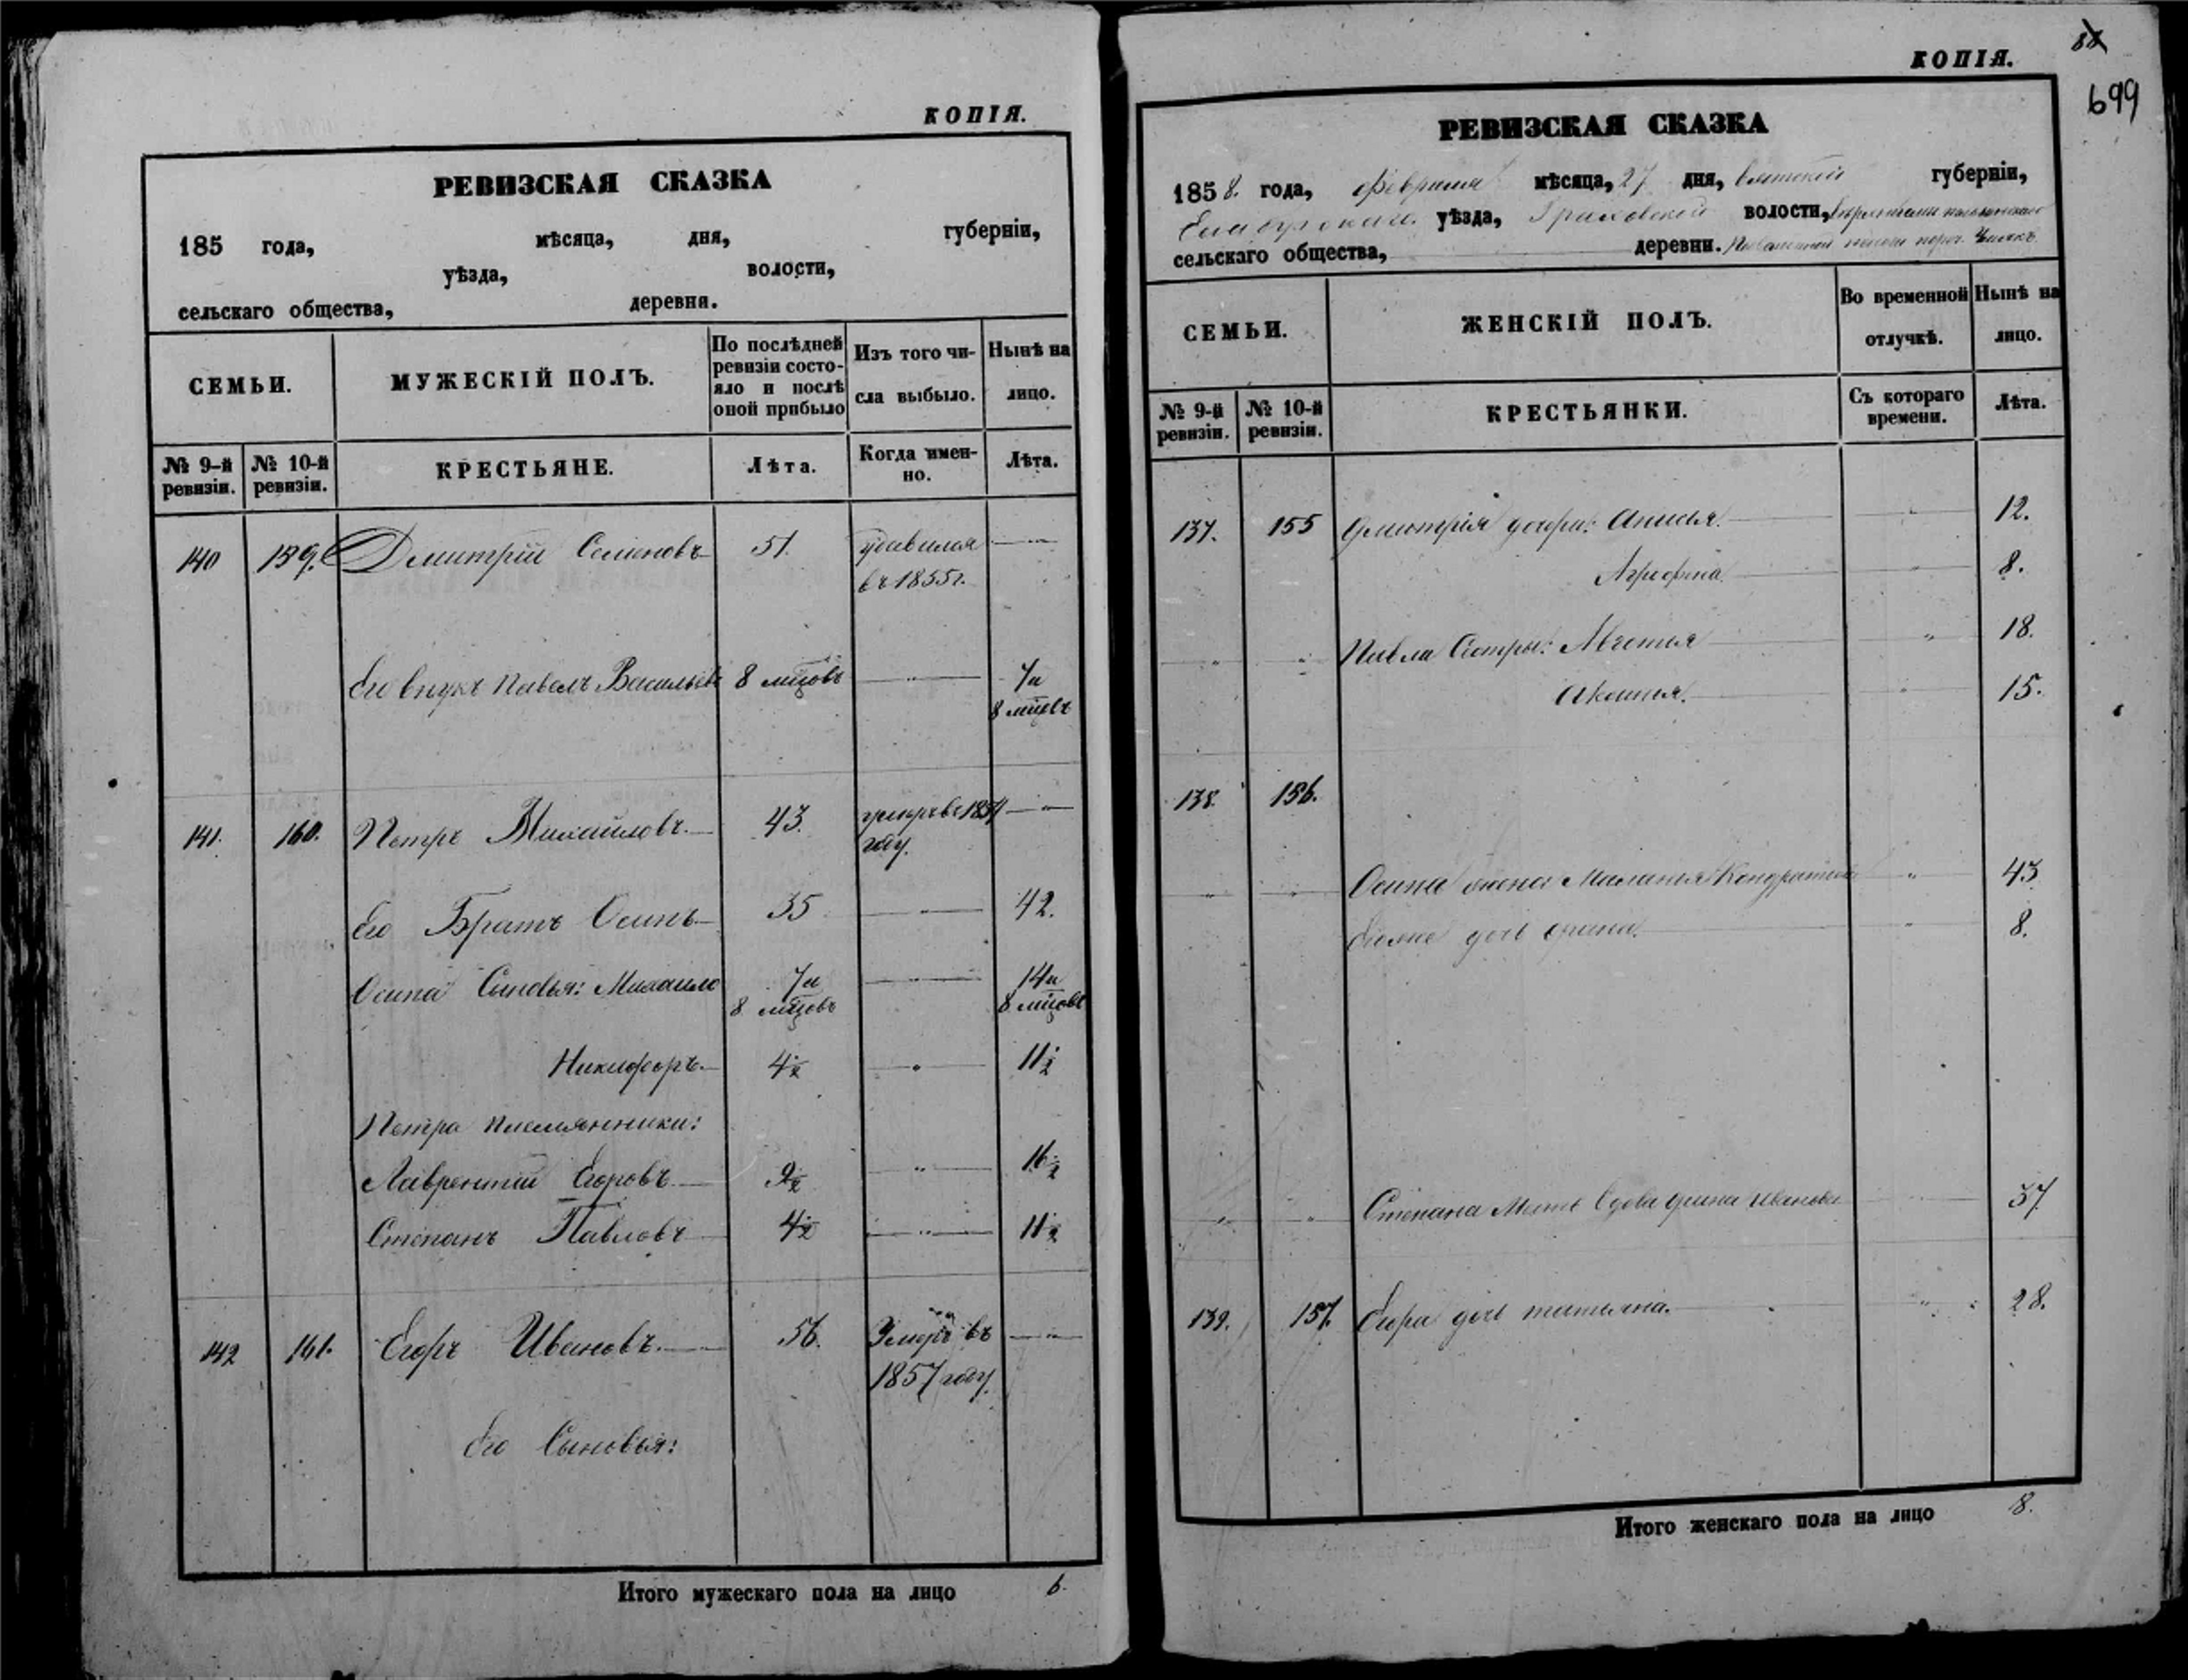 КОПІЯ.
РЕВИЗСКАЯ СКАЗКА
185 года, мѣсяца, дня, губерніи,
уѣзда, волости,
сельскаго общества, деревни.
СЕМЬИ.
МУЖЕСКІЙ ПОЛЪ.
По послѣдней
ревизіи состо-
яло и послѣ
оной прибыло
Изъ того чи-
сла выбыло.
Нынѣ на
лицо.
№ 9-й
ревизіи.
№ 10-й
ревизіи.
КРЕСТЬЯНЕ.
Лѣта.
Когда имен-
но.
Лѣта.
140 159. Дмитрій Семеновъ 51. удавился
въ 1855 г.
Его внукъ Павелъ Васильевъ 8 мцовъ 7 и
8 мцовъ
141. 160. Петръ Михайловъ. 43. 
году.
Его Братъ Осипъ 35 42.
Осипа Сыновья: Михайло 7 и 14 и
8 мцовъ 8 мцовъ
Никифоръ. 4½ 11½
Петра племянники:
Лаврентій Егоровъ 9½ 16½
Степанъ Павловъ 4½ 11½
142 161. Егоръ Ивановъ. 56. Умеръ въ
1857 году.
Его Сыновья:
Итого мужескаго пола на лицо 6.
699
КОПІЯ.
РЕВИЗСКАЯ СКАЗКА
1858. года, Февраля мѣсяца, 27 дня, Вятской губерніи,
Елабугскаго уѣзда, Граховской волости,
сельскаго общества, деревни.
СЕМЬИ.
ЖЕНСКІЙ ПОЛЪ.
Во временной
отлучкѣ.
Нынѣ на
лицо.
№ 9-й
ревизіи.
№ 10-й
ревизіи.
КРЕСТЬЯНКИ.
Съ котораго
времени.
Лѣта.
137. 155 Дмитрія дочери: Анисья. 12.
Агрофена. 8.
Павла Сестры: Авдотья 18.
Акилина. 15.
138. 156.
Осипа жена: Маланья Кондратьева 43
Ея же дочь Ирина. 8.
Степана Мать вдова Ирина Иванова 37
139. 157. Егора дочь татьяна. 28.
Итого женскаго пола на лицо 8.